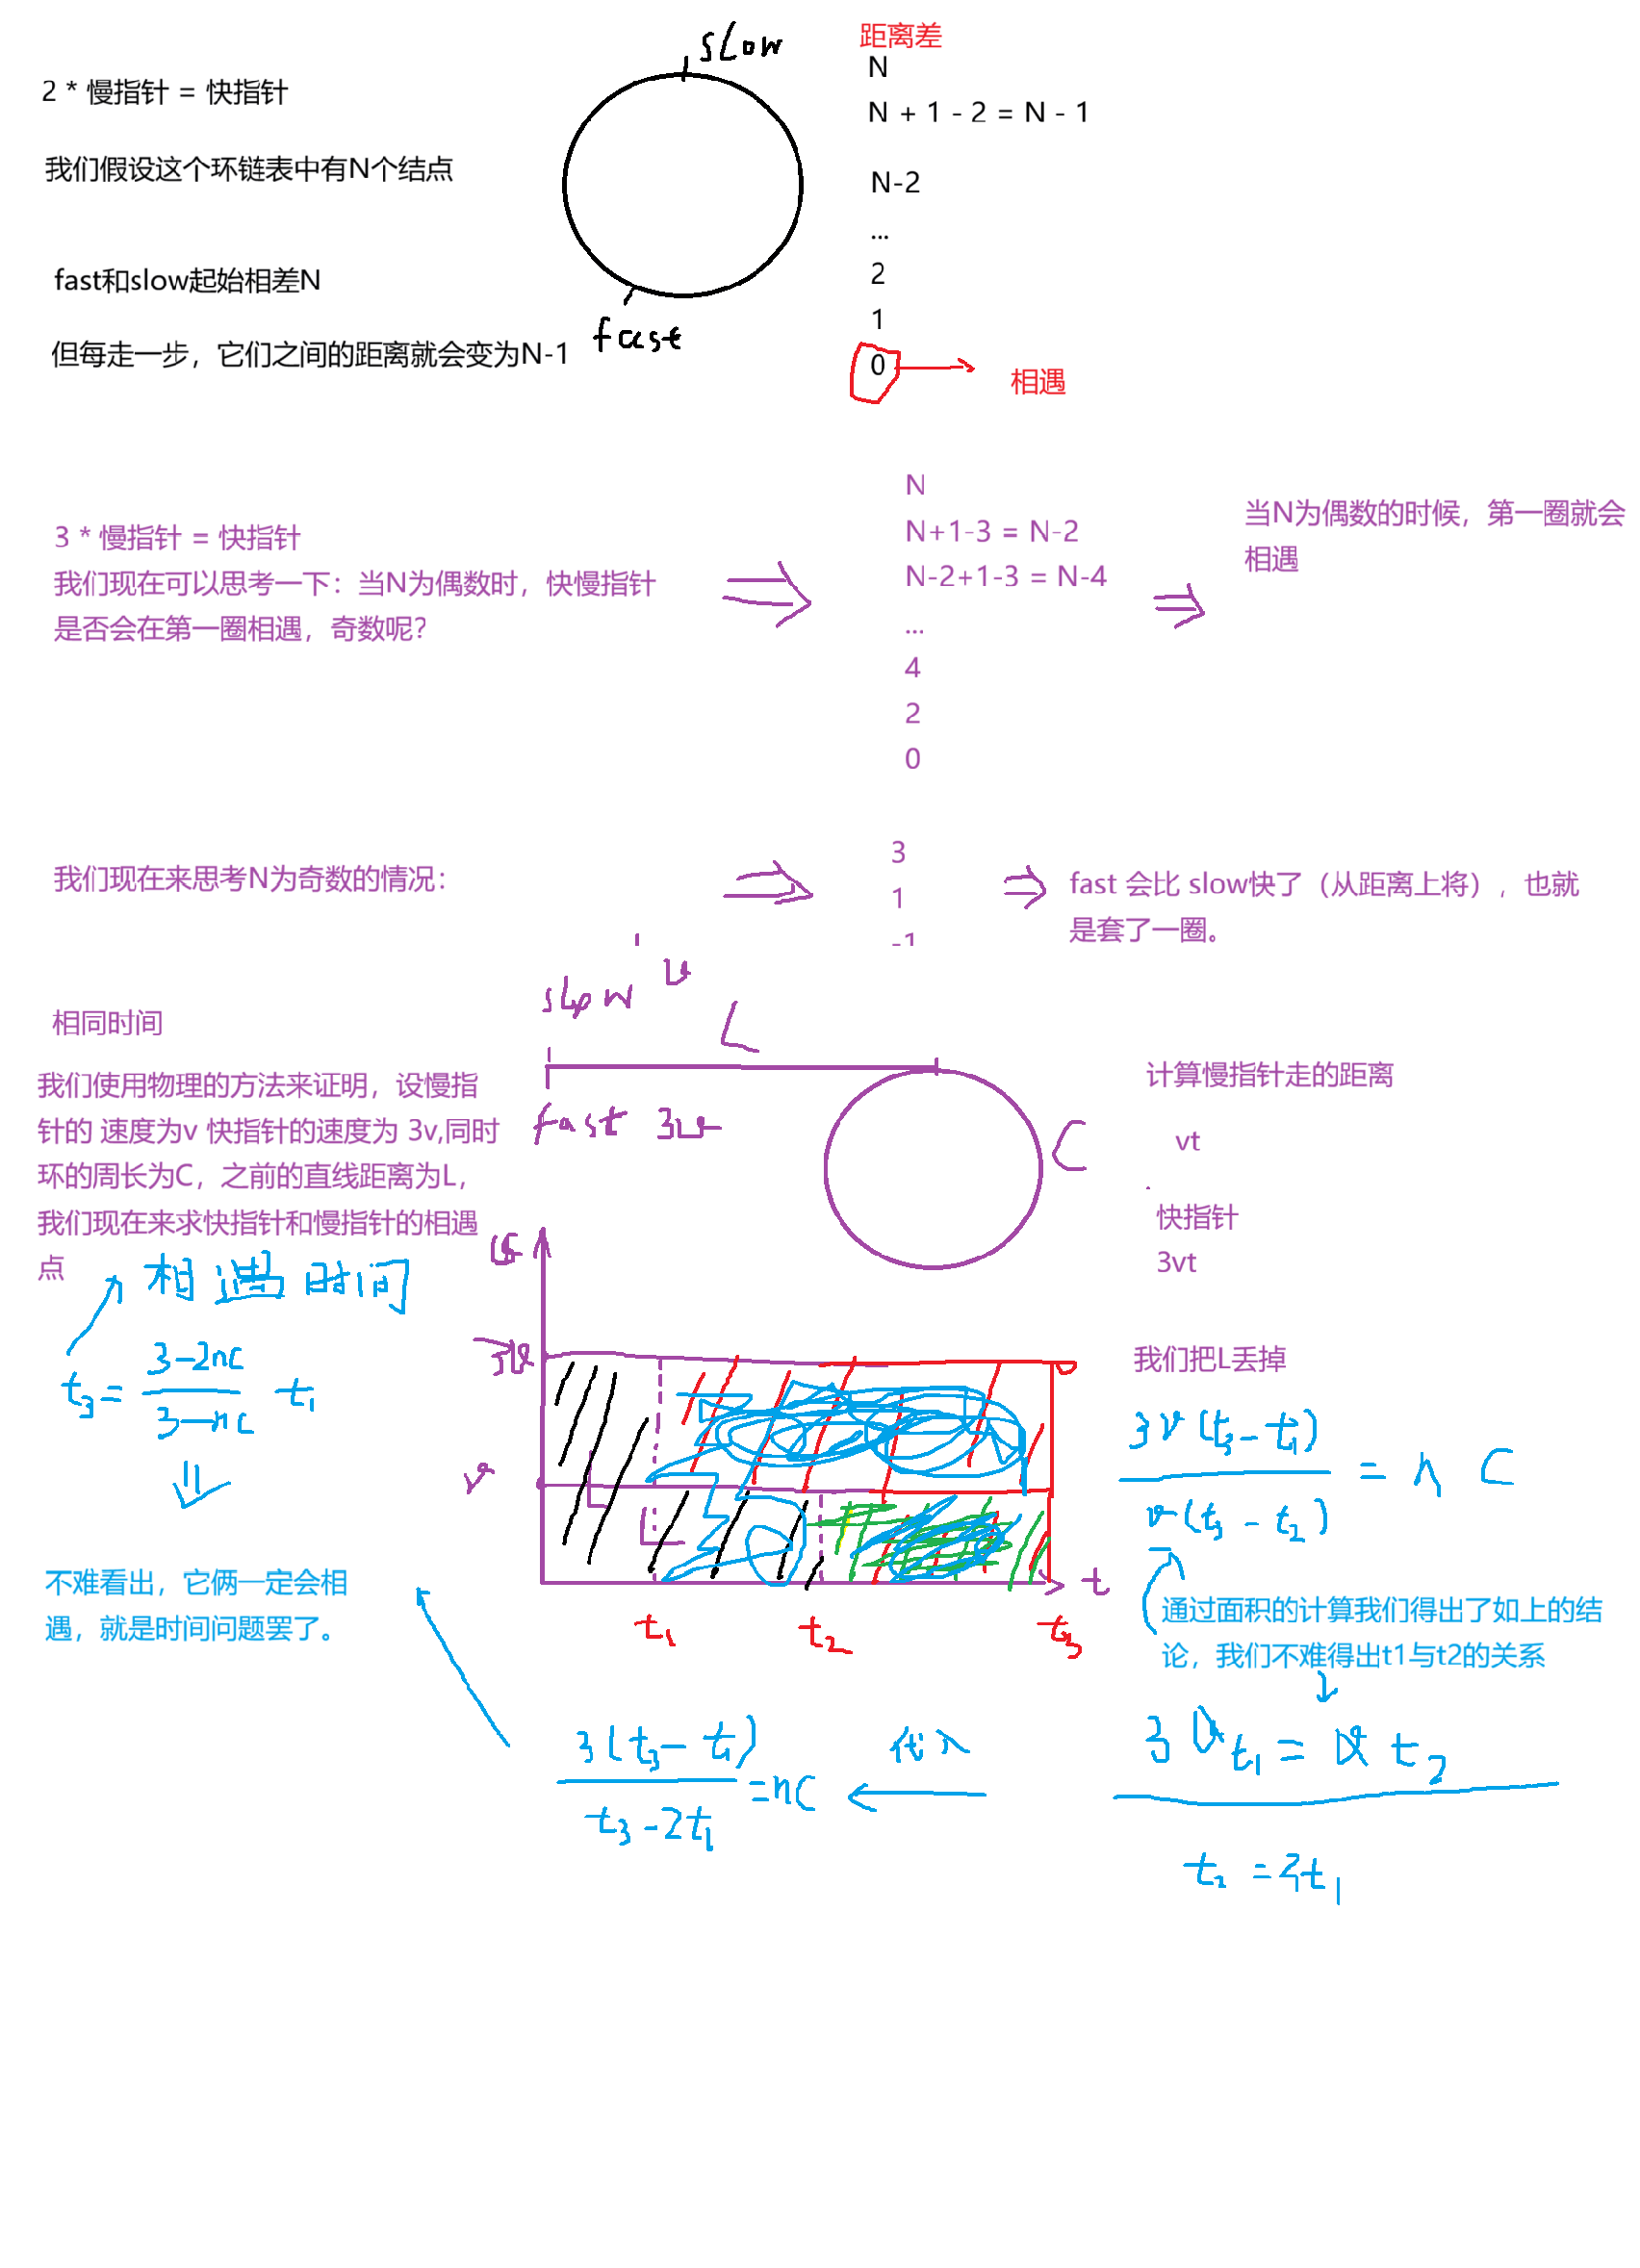 slow
距离差
2 * 慢指针 = 快指针
N
N + 1 - 2 = N - 1
我们假设这个环链表中有N个结点
N-2
...
2
fast和slow起始相差N
1
fast
但每走一步，它们之间的距离就会变为N-1
0
相遇
N
3 * 慢指针 = 快指针
N+1-3 = N-2
当N为偶数的时候，第一圈就会
相遇
我们现在可以思考一下：当N为偶数时，快慢指针
是否会在第一圈相遇，奇数呢？
N-2+1-3 = N-4
...
4
2
0
3
我们现在来思考N为奇数的情况：
1
-1
fast 会比 slow快了（从距离上将），也就
是套了一圈。
slow v
L
相同时间
我们使用物理的方法来证明，设慢指
针的 速度为v 快指针的速度为 3v,同时
环的周长为C，之前的直线距离为L，
我们现在来求快指针和慢指针的相遇
点
fast 3v
C
计算慢指针走的距离
vt
快指针
3vt
v
相遇时间
3v
我们把L丢掉
t3 = (3-2nC)/(3-nC) t1
3v(t3-t1)
v(t3-t2)
= n C
v
L
L
t
t1
t2
t3
不难看出，它俩一定会相
遇，就是时间问题罢了。
通过面积的计算我们得出了如上的结
论，我们不难得出t1与t2的关系
3vt1 = vt2
代入
3(t3-t1)
t3-2t1
=nC